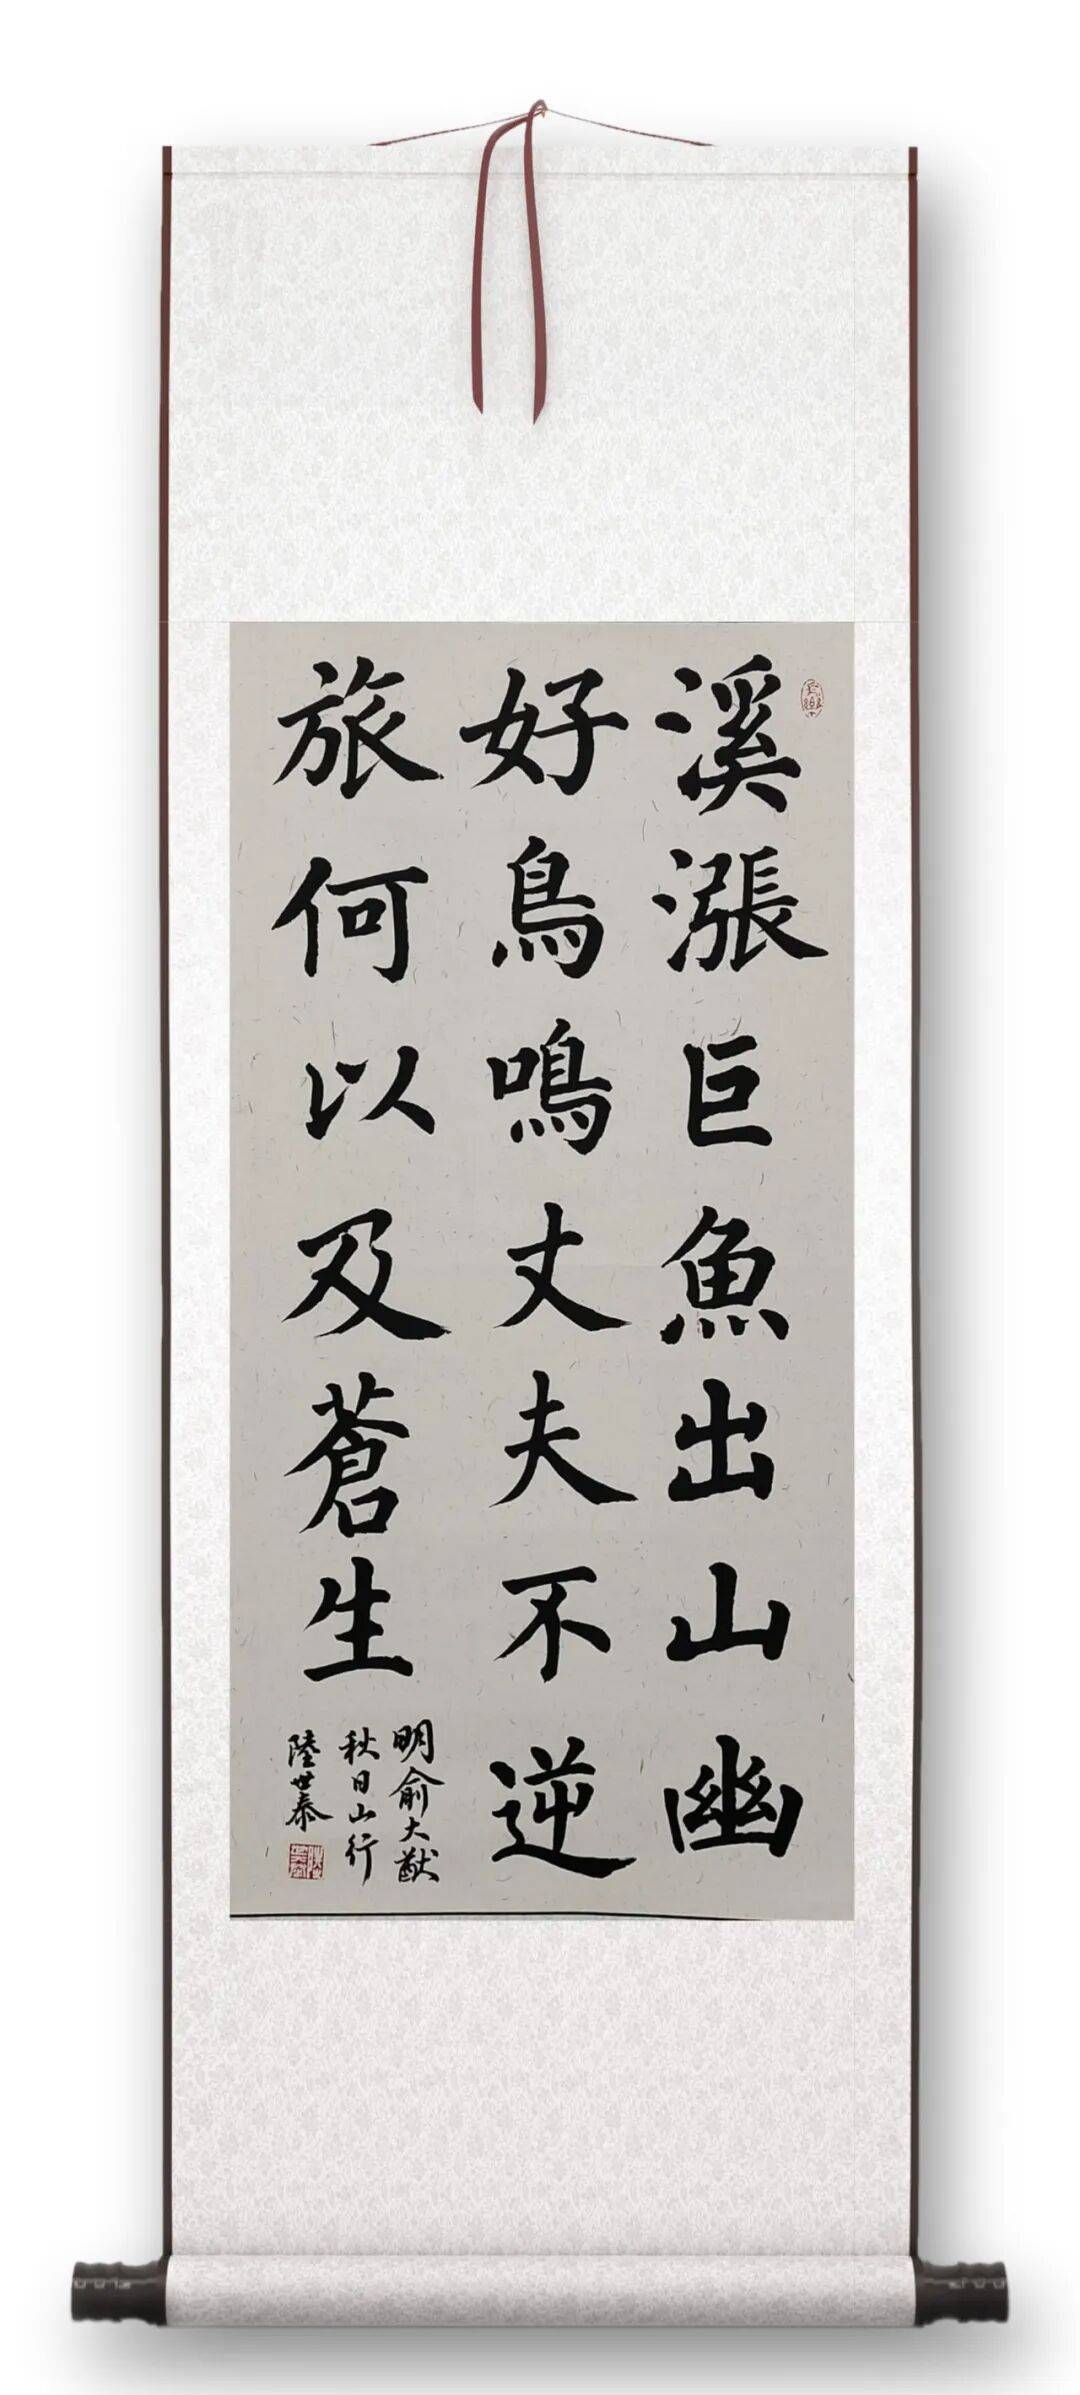 溪漲巨魚出山幽
好鳥鳴丈夫不逆
旅何以及蒼生
明俞大猷
秋日山行
陸世泰